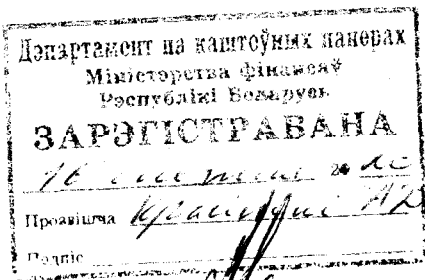 Дэпартамент па каштоўных паперах
Міністэрства фінансаў
Рэспублікі Беларусь
ЗАРЭГІСТРАВАНА
16 20
Прозвішча
Подпіс